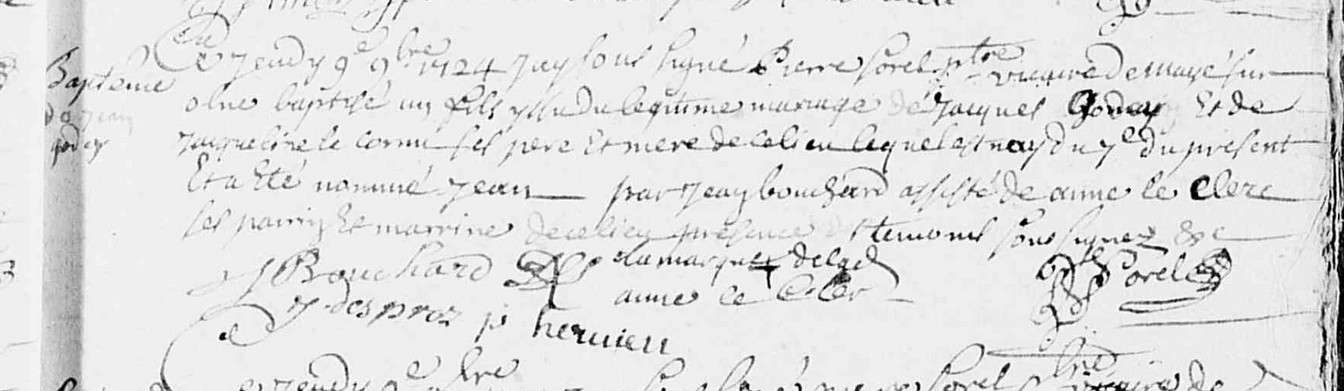 Baptême
de jean
godey
Ce Jeudy 9e 9bre 1724 Jay sous signé Pierre sorel ptre vicaire de
olne baptisé un fils yssu du legitime mariage de Jacques Godey Et de
Jacqueline le cornu ses pere Et mere de ce lieu lequel est nay du 7e du present
Et a Eté nommé jean par jean bouchard assisté de anne le Clerc
ses parrin Et marrine de ce lieu presence des temoins sous signez &c
J Bouchard la marque de lad
anne le Cler Sorel
J desprez p hervieu
Ce